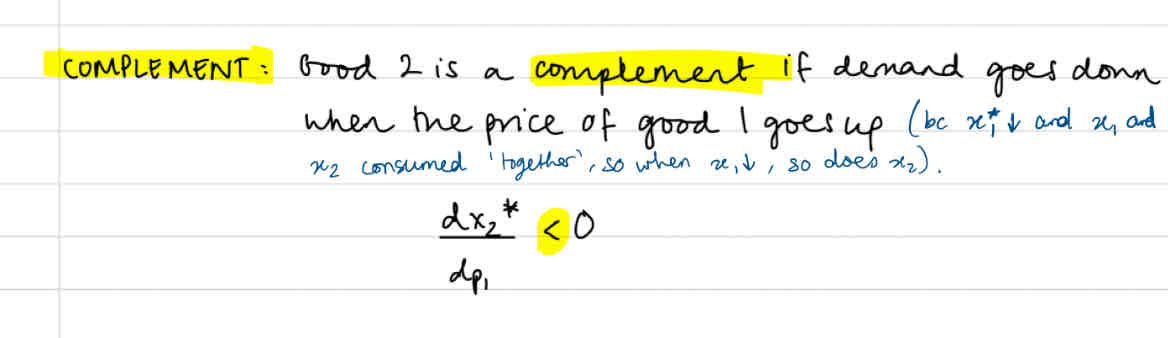 COMPLEMENT: Good 2 is a complement if demand goes down
when the price of good 1 goes up (bc x₁* ↓ and x₁ and
x₂ consumed 'together', so when x₁↓, so does x₂).
dx₂* < 0
dp₁